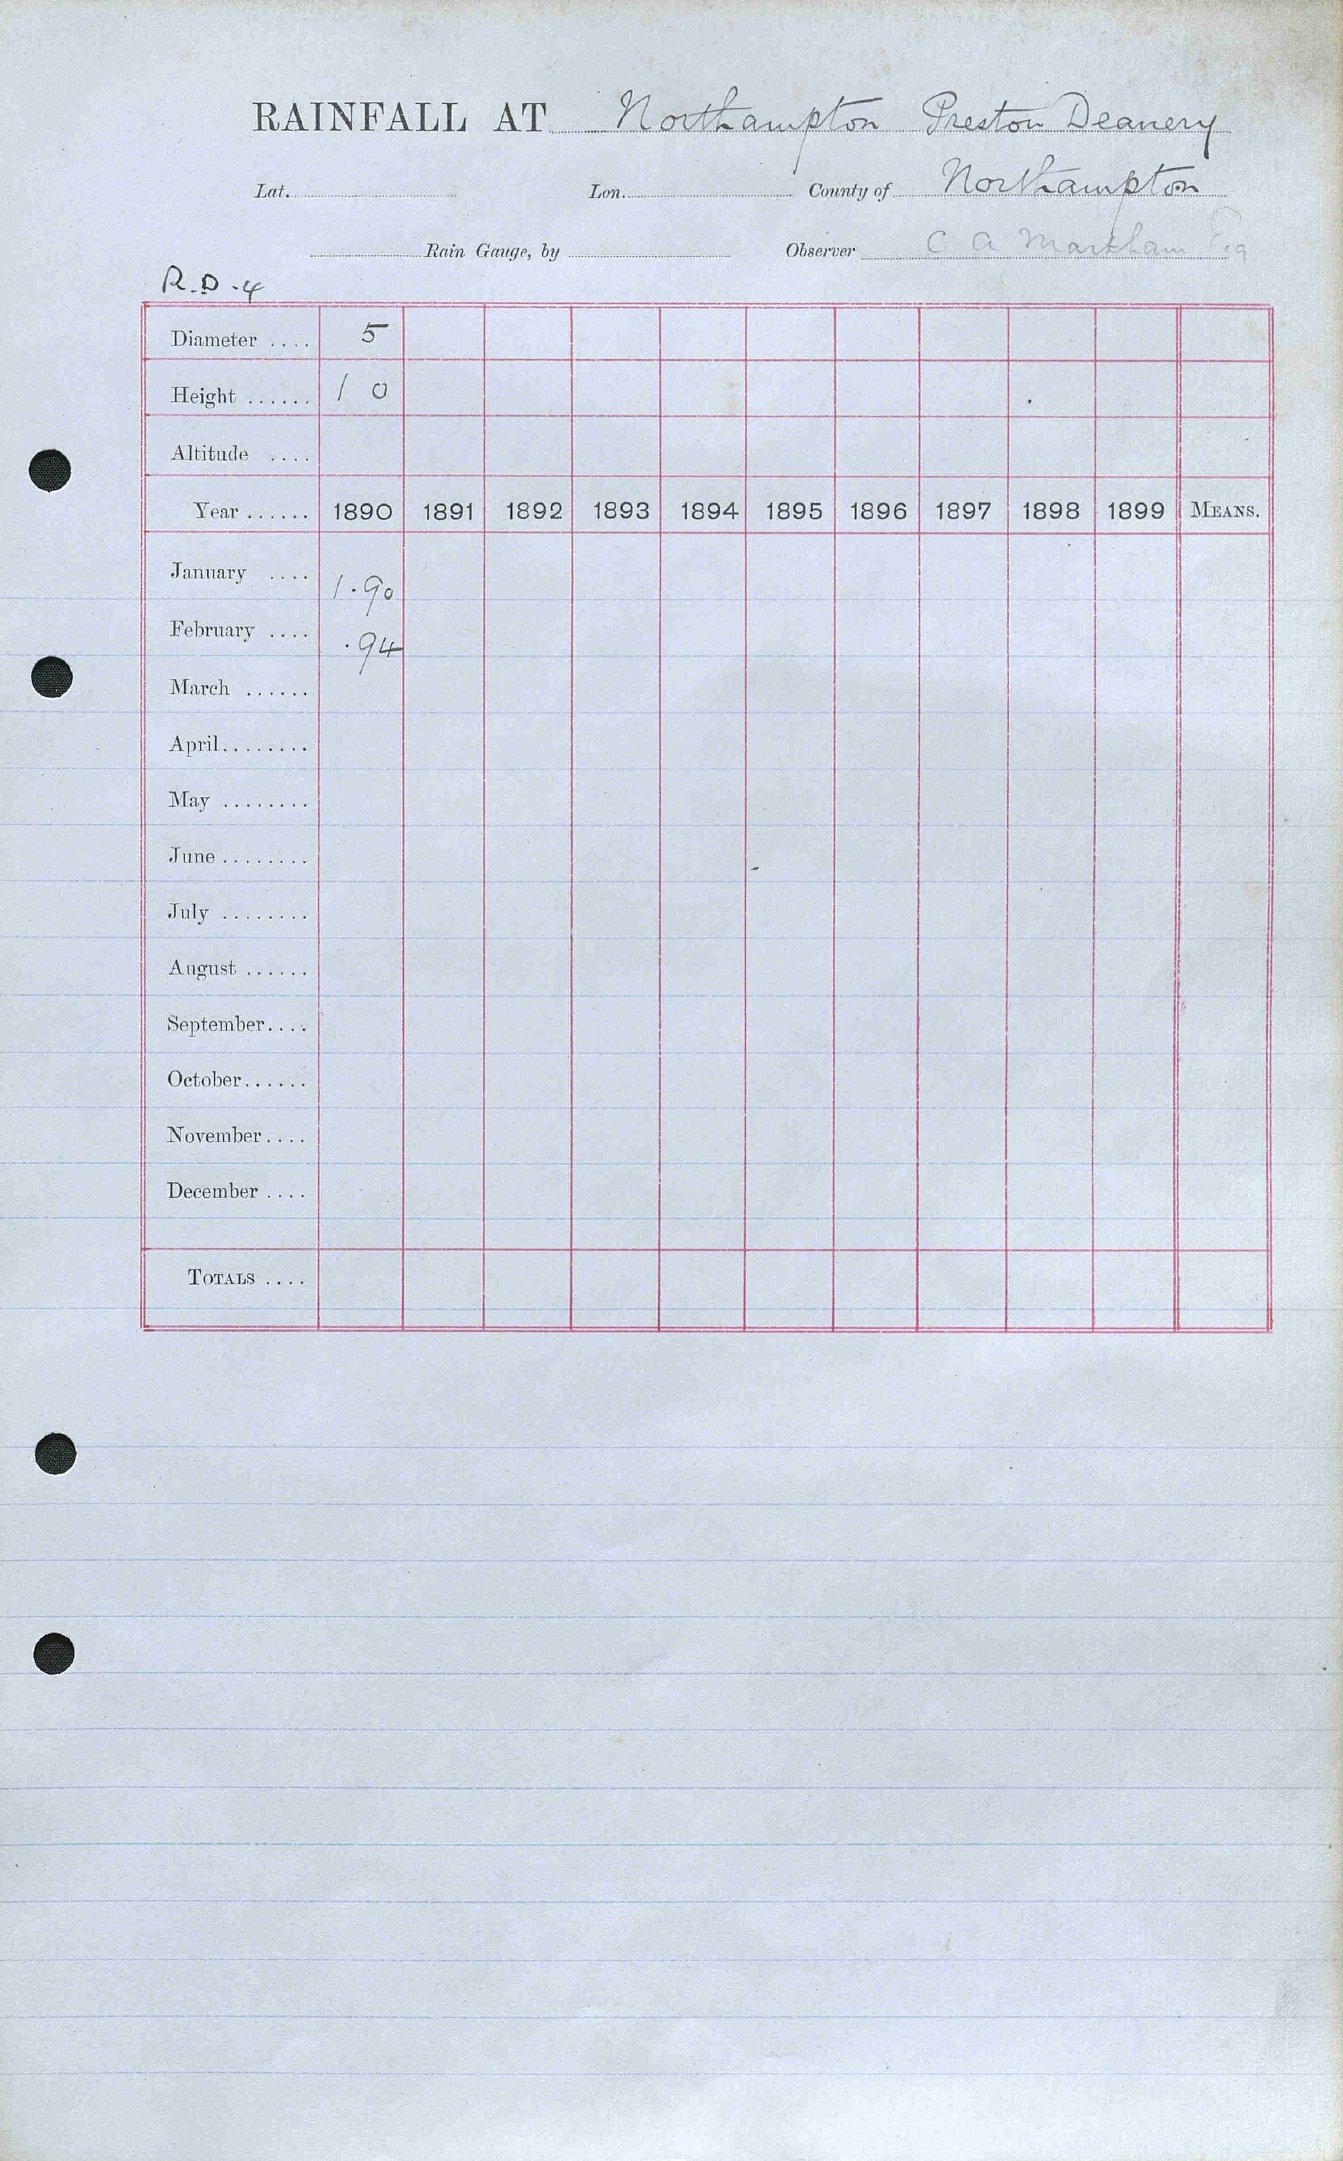 RAINFALL AT Northampton Preston Deanery
Lat. Lon. County of Northampton
Rain Gauge, by Observer C A Markham Esq
R.D.4
Diameter .... 5
Height ...... 1 0
Altitude ....
Year ...... 1890 1891 1892 1893 1894 1895 1896 1897 1898 1899 MEANS.
January .... 1.90
February .... .94
March ......
April........
May ........
June ........
July ........
August ......
September....
October......
November....
December ....
TOTALS ....